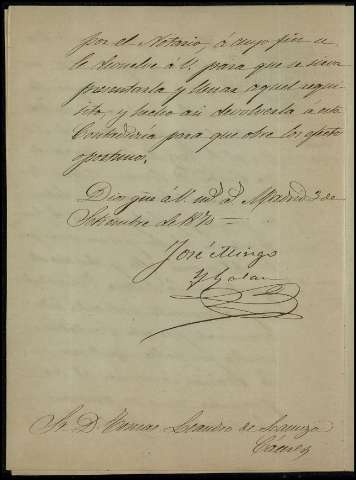 por el Notario, á cuyo fin se
le devuelve á V. para que se sirva
presentarla y llenar aquel requi-
sito, y hecho asi devolverla á esta
Contaduria para que obre los efectos
oportunos.
Dios gũe á V. mˢ aˢ Madrid 3 de
Setiembre de 1870=
José Mingo
y
Sr. D. Leandro de